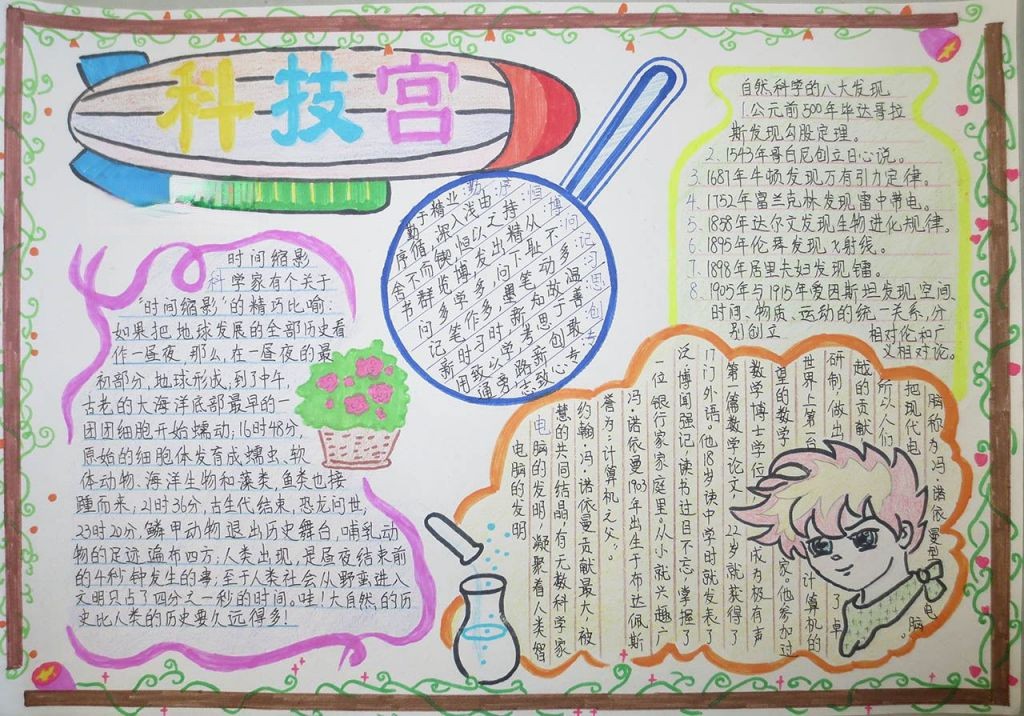 科技宫
自然科学的八大发现
1.公元前500年毕达哥拉
斯发现勾股定理。
2.1543年哥白尼创立日心说。
3.1687年牛顿发现万有引力定律。
4.1752年富兰克林发现雷中带电。
5.1858年达尔文发现生物进化规律。
6.1895年伦琴发现X射线。
7.1898年居里夫妇发现镭。
8.1905年与1915年爱因斯坦发现空间、
时间、物质、运动的统一关系,分
别创立相对伦和广
义相对论。
勤:业精于勤
序:由浅入深,循序
恒:持之以恒,锲而不舍
博:从精出发,博览群书
问:不耻下问,多学多问
记:多动笔墨,多作笔记
习:温故知新,时习时新
思:善于思考,学以致用
创:敢创新路旁通
专:专心致志
时间缩影
科学家有个关于
“时间缩影”的精巧比喻:
如果把地球发展的全部历史看
作一昼夜,那么,在一昼夜的最
初部分,地球形成,到了中午,
古老的大海洋底部最早的一
团团细胞开始蠕动;16时48分,
原始的细胞体发育成蠕虫、软
体动物、海洋生物和藻类,鱼类也接
踵而来;21时36分,古生代结束,恐龙问世,
23时20分,鳞甲动物退出历史舞台,哺乳动
物的足迹遍布四方,人类出现,是昼夜结束前
的4秒钟发生的事;至于人类社会从野蛮进入
文明只占了四分之一秒的时间。哇!大自然的历
史比人类的历史要久远得多!
电脑的发明
电脑的发明,凝聚着人类智
慧的共同结晶,有无数科学家
约翰·冯·诺依曼贡献最大,被
誉为:计算机之父。
冯·诺依曼1903年出生于布达佩斯
一位银行家家庭里。从小就兴趣广
泛博闻强记,读书过目不忘,掌握了
17门外语。他18岁读中学时就发表了
第一篇数学论文,22岁就获得了
数学博士学位,成为极有声
望的数学家。他参加过
世界上第一台计算机的
研制,做出了卓
越的贡献
所以人们
把现代电脑
脑称为冯·诺依曼型电脑。